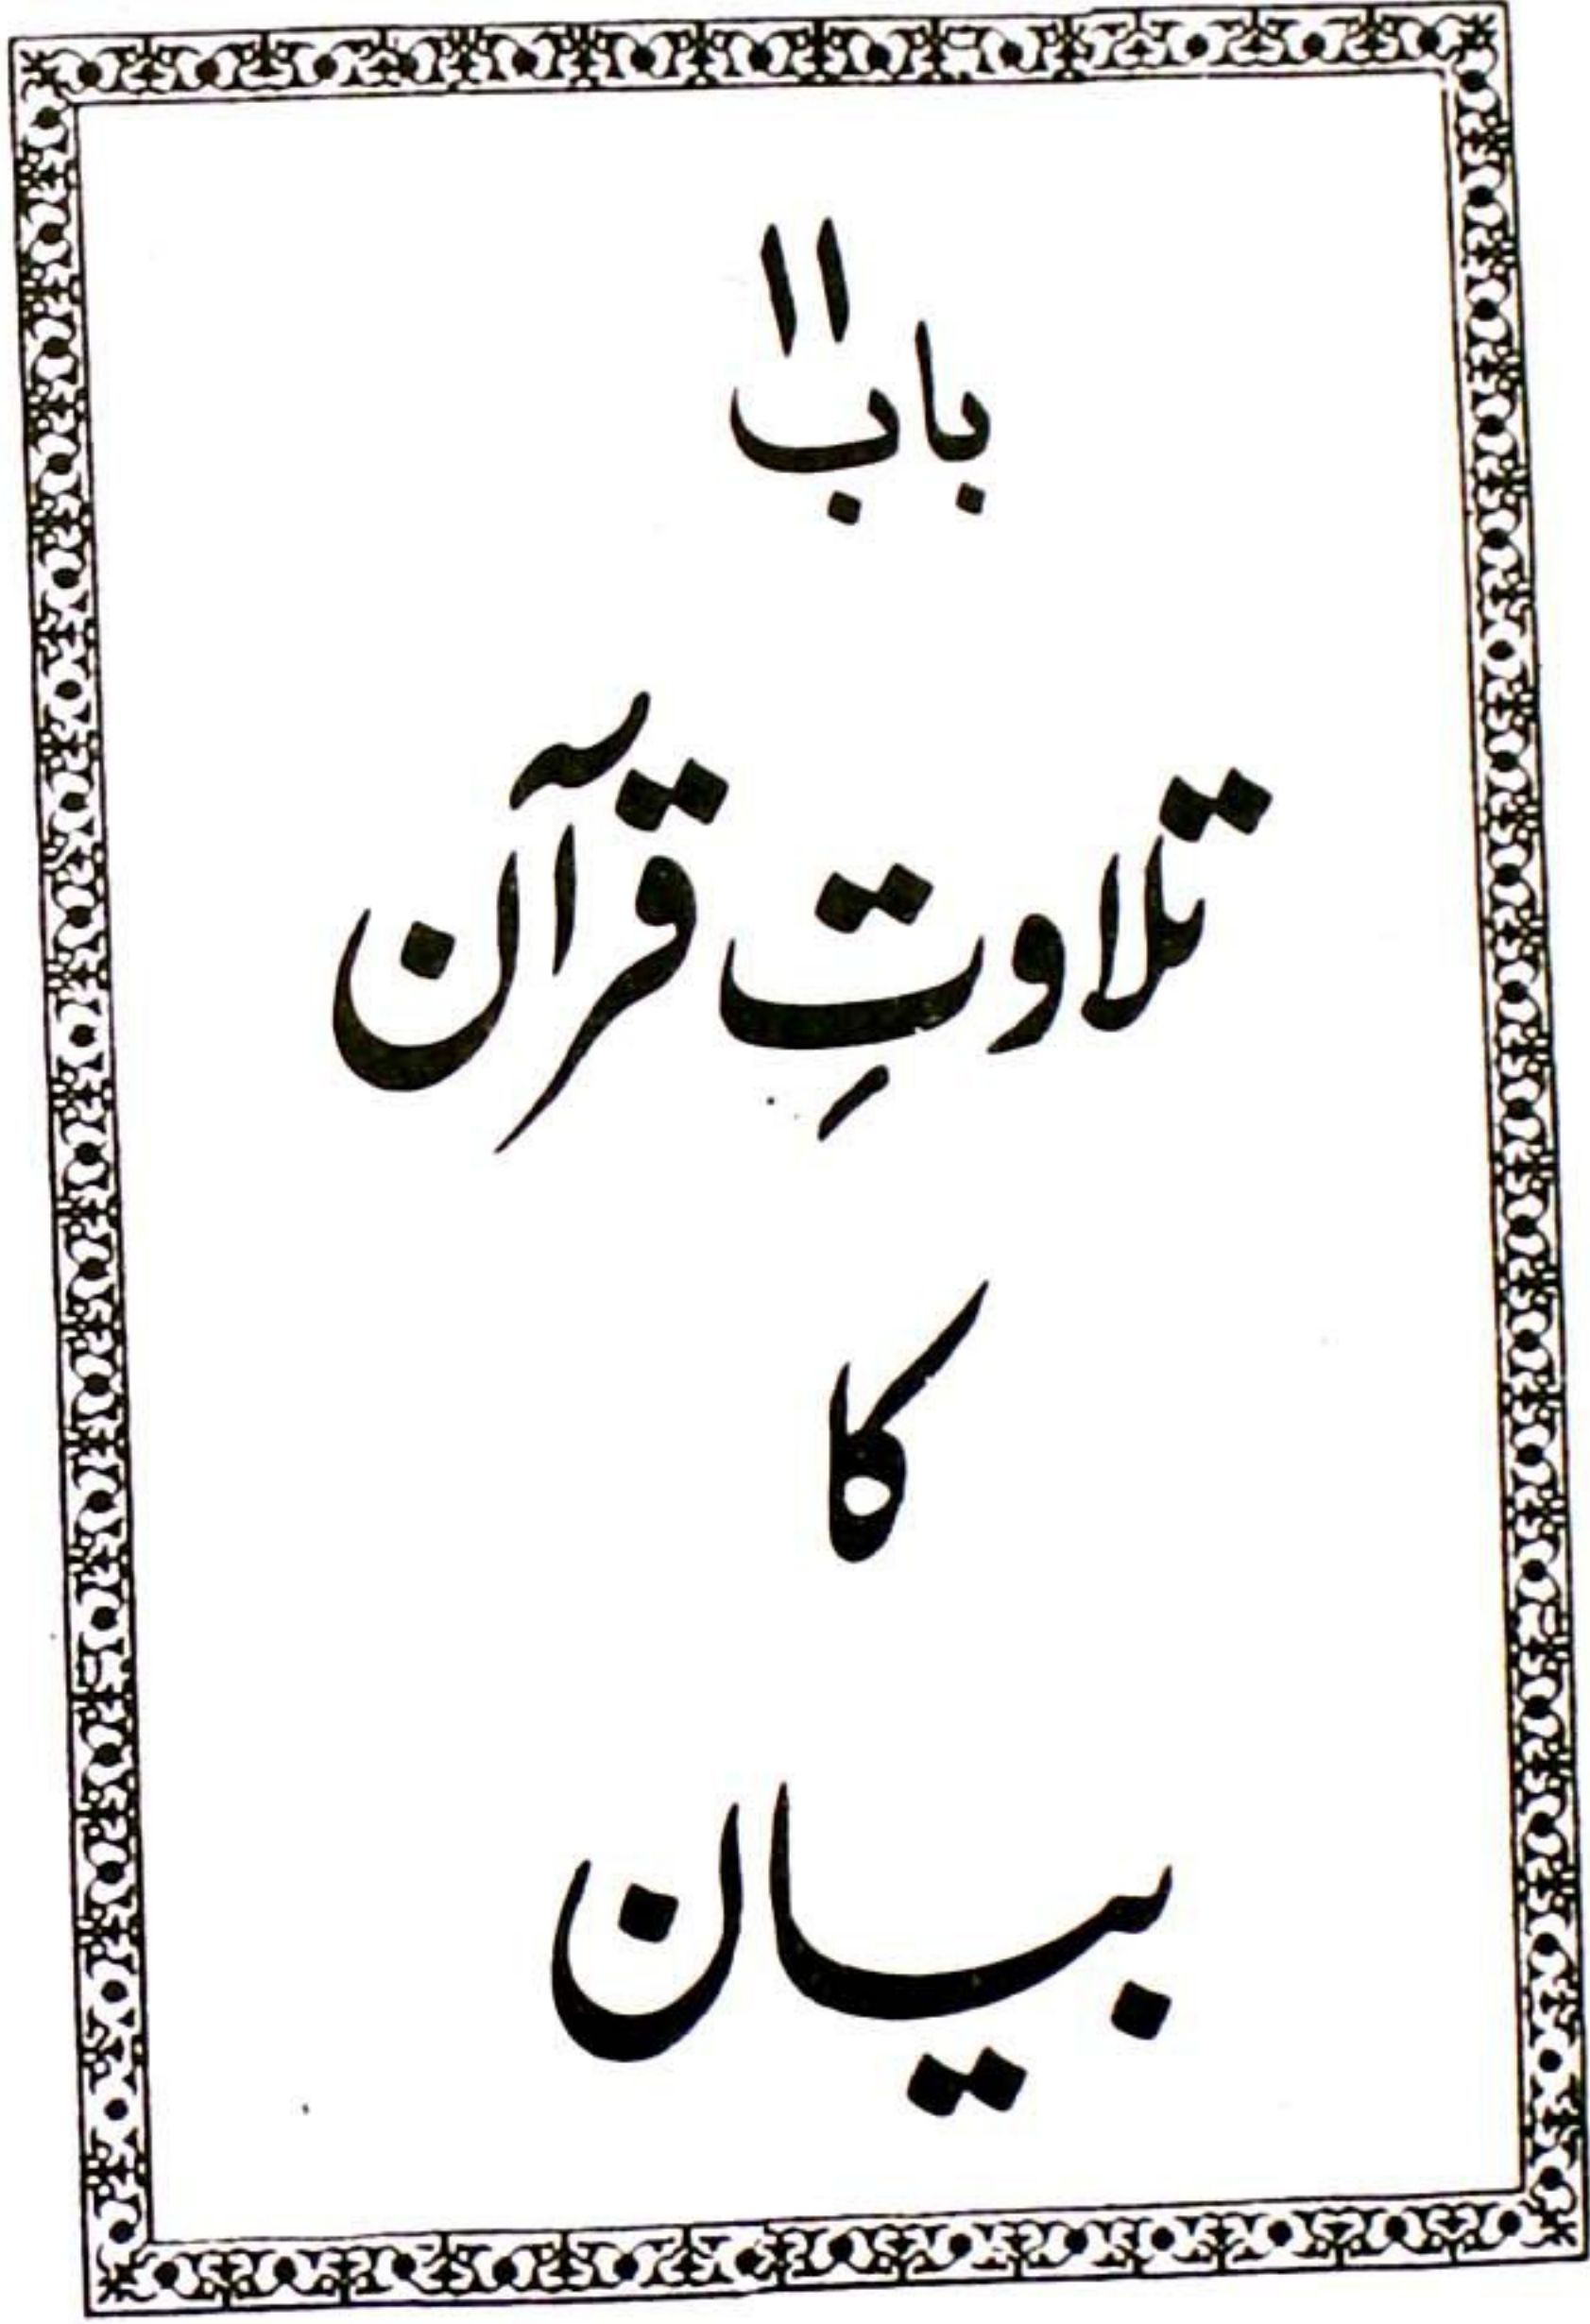 باب ۱۱
تلاوتِ قرآن
کا
بیان